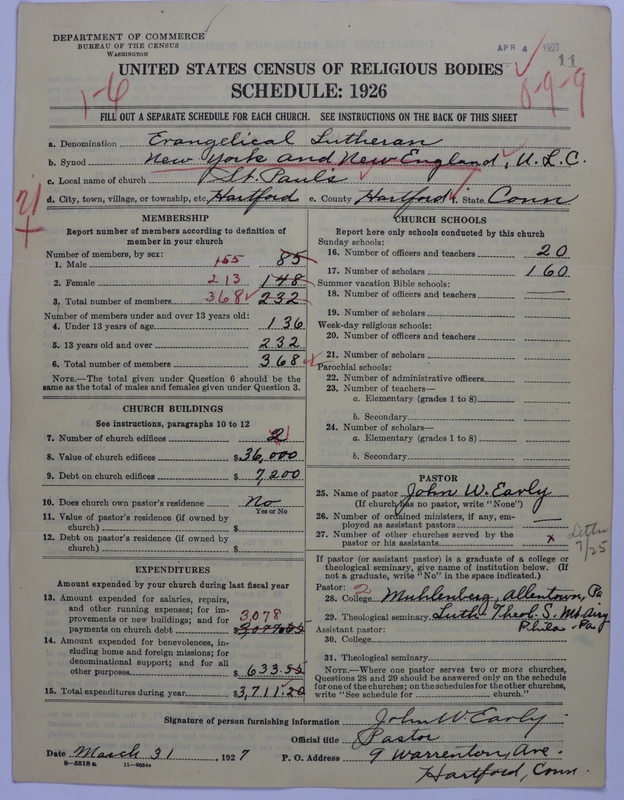 DEPARTMENT OF COMMERCE
BUREAU OF THE CENSUS
WASHINGTON
APR 4 1927
11
UNITED STATES CENSUS OF RELIGIOUS BODIES
SCHEDULE: 1926
1-6
FILL OUT A SEPARATE SCHEDULE FOR EACH CHURCH. SEE INSTRUCTIONS ON THE BACK OF THIS SHEET
a. Denomination Evangelical Lutheran
b. Synod New York and New England, U.L.C.
c. Local name of church St. Paul's
d. City, town, village, or township, etc. Hartford e. County Hartford f. State Conn
MEMBERSHIP
Report number of members according to definition of
member in your church
Number of members, by sex:
1. Male 155 85
2. Female 213 148
3. Total number of members 368 232
Number of members under and over 13 years old:
4. Under 13 years of age 136
5. 13 years old and over 232
6. Total number of members 368
NOTE.—The total given under Question 6 should be the
same as the total of males and females given under Question 3.
CHURCH BUILDINGS
See instructions, paragraphs 10 to 12
7. Number of church edifices 2 1
8. Value of church edifices $36,000
9. Debt on church edifices $7,200
10. Does church own pastor's residence No
Yes or No
11. Value of pastor's residence (if owned by
church) $
12. Debt on pastor's residence (if owned by
church) $
EXPENDITURES
Amount expended by your church during last fiscal year
13. Amount expended for salaries, repairs,
and other running expenses; for im-
provements or new buildings; and for 3,078
payments on church debt $
14. Amount expended for benevolences, in-
cluding home and foreign missions; for
denominational support; and for all
other purposes 633.55
15. Total expenditures during year $3,711.20
CHURCH SCHOOLS
Report here only schools conducted by this church
Sunday schools:
16. Number of officers and teachers 20
17. Number of scholars 160
Summer vacation Bible schools:
18. Number of officers and teachers —
19. Number of scholars
Week-day religious schools:
20. Number of officers and teachers
21. Number of scholars
Parochial schools:
22. Number of administrative officers
23. Number of teachers—
a. Elementary (grades 1 to 8)
b. Secondary
24. Number of scholars—
a. Elementary (grades 1 to 8)
b. Secondary
PASTOR
25. Name of pastor John W. Early
(If church has no pastor, write "None")
26. Number of ordained ministers, if any, em-
ployed as assistant pastors —
27. Number of other churches served by the
pastor or his assistants x
Letter
7/25
If pastor (or assistant pastor) is a graduate of a college or
theological seminary, give name of institution below. (If
not a graduate, write "No" in the space indicated.)
Pastor: 2
28. College Muhlenberg, Allentown, Pa
29. Theological seminary Luth. Theol. S. Mt. Airy
Phila. Pa
Assistant pastor:
30. College
31. Theological seminary
NOTE.—Where one pastor serves two or more churches,
Questions 28 and 29 should be answered only on the schedule
for one of the churches; on the schedules for the other churches,
write "See schedule for church."
Signature of person furnishing information John W. Early
Official title Pastor
Date March 31 1927 P. O. Address 9 Warrenton, Ave.
Hartford, Conn.
8—5518a 11—9056a